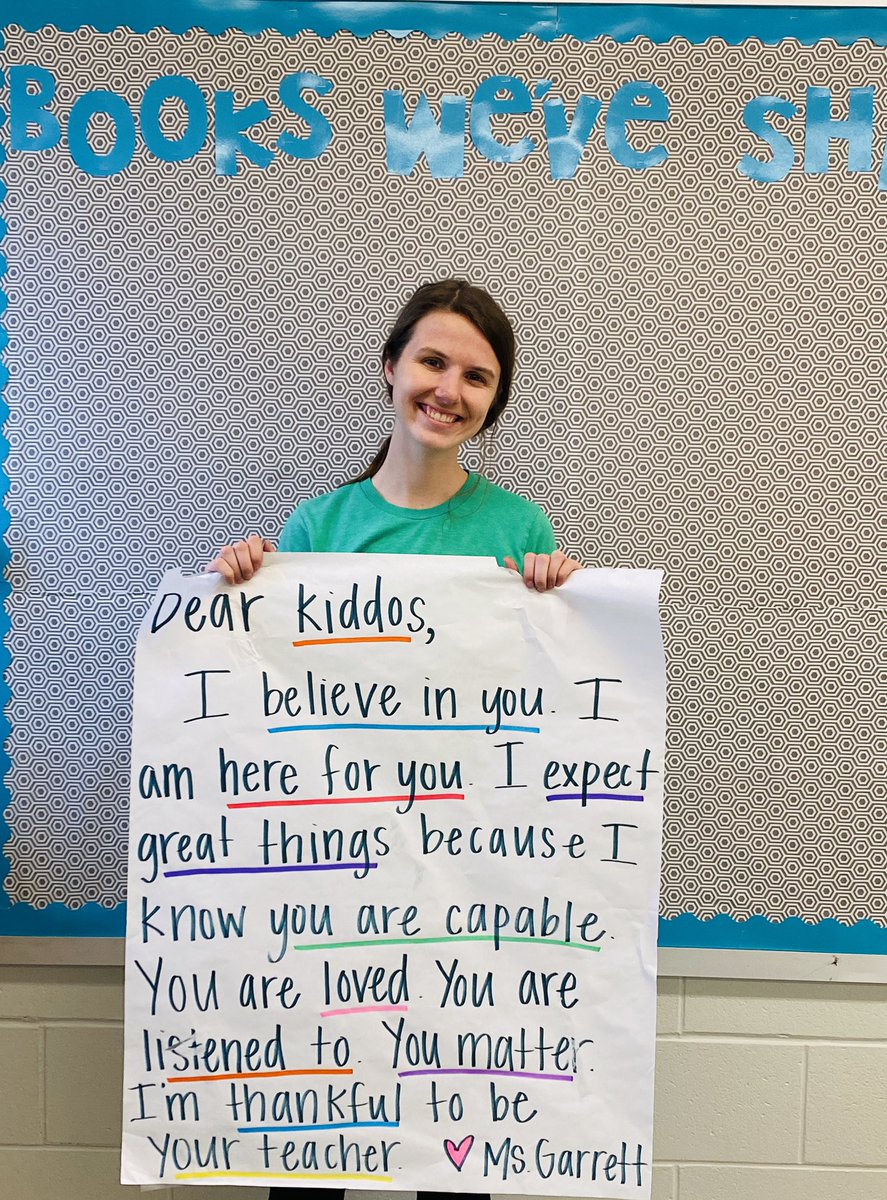 BOOKS We've SH
Dear Kiddos,
I believe in you. I
am here for you. I expect
great things because I
know you are capable.
You are loved. You are
listened to. You matter.
I'm thankful to be
your teacher. ♥ Ms. Garrett